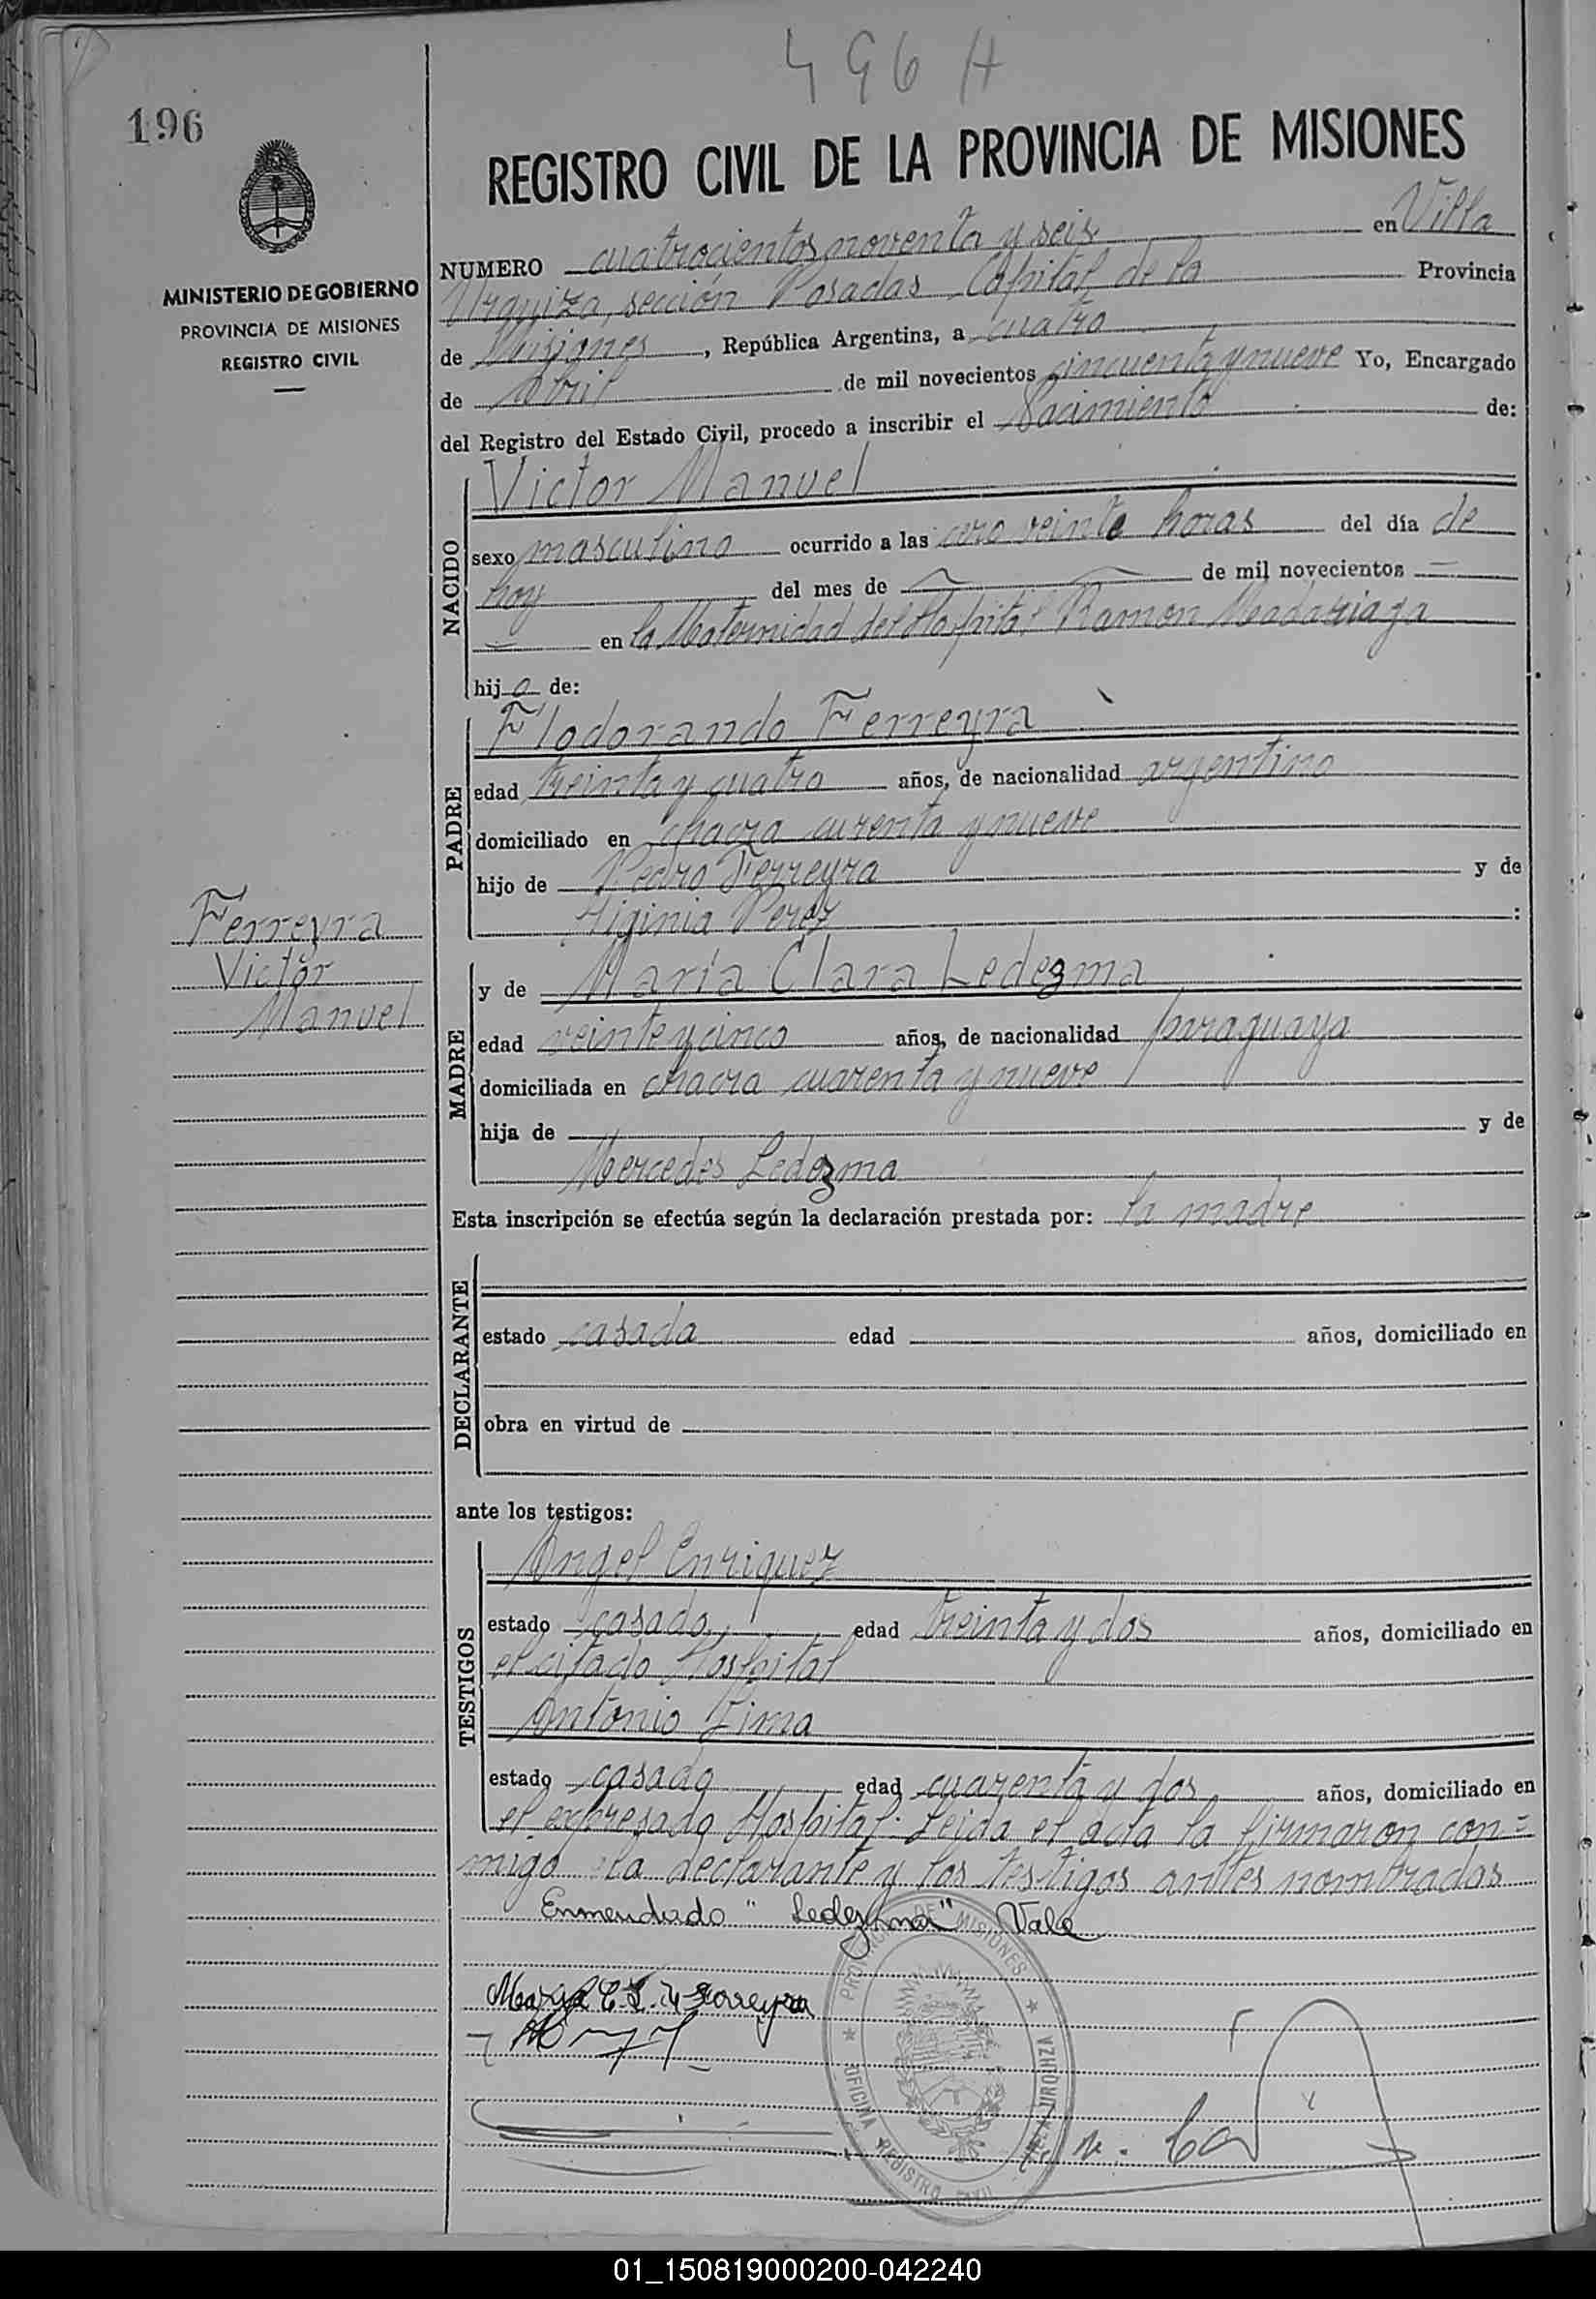 496 H
196
REGISTRO CIVIL DE LA PROVINCIA DE MISIONES
MINISTERIO DE GOBIERNO
PROVINCIA DE MISIONES
REGISTRO CIVIL
NUMERO cuatrocientos noventa y seis en Villa
Urquiza, sección Posadas Capital de la Provincia
de Misiones, República Argentina, a cuatro
de Abril de mil novecientos cincuenta y nueve Yo, Encargado
del Registro del Estado Civil, procedo a inscribir el Nacimiento de:
NACIDO
Victor Manuel
sexo masculino ocurrido a las cero veinte horas del día de
hoy del mes de de mil novecientos
en la Maternidad del Hospital Ramon Madariaga
hijo de:
PADRE
Flodorando Ferreyra
edad treinta y cuatro años, de nacionalidad argentino
domiciliado en chacra curenta y nueve
hijo de Pedro Ferreyra y de
Higinia Perez :
Ferreyra
Victor
Manuel
MADRE
y de María Clara Ledezma
edad veinte y cinco años, de nacionalidad paraguaya
domiciliada en chacra cuarenta y nueve
hija de y de
Mercedes Ledezma
Esta inscripción se efectúa según la declaración prestada por: la madre
DECLARANTE
estado casada edad años, domiciliado en
obra en virtud de
ante los testigos:
TESTIGOS
Angel Enriquez
estado casado edad treinta y dos años, domiciliado en
el citado Hospital
Antonio Lima
estado casado edad cuarenta y dos años, domiciliado en
el expresado Hospital. Leida el acta la firmaron con=
migo la declarante y los testigos antes nombrados
Enmendado "Ledezma" Vale
PROVINCIA DE MISIONES
VILLA URQUIZA
OFICINA REGISTRO CIVIL
Maria C. L. de Ferreyra
01_150819000200-042240